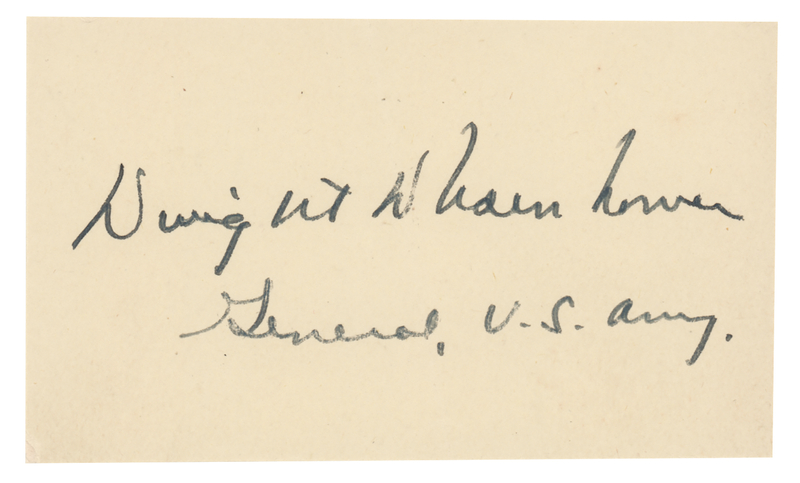 Dwight D Eisenhower
General, U.S. Army.